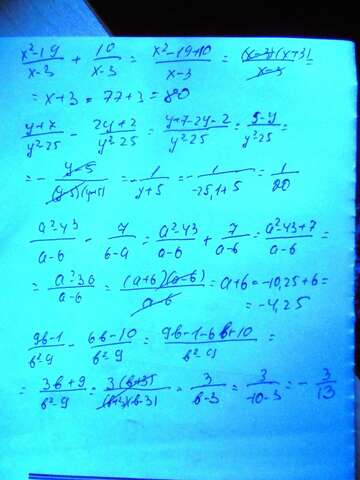 x²-19/x-3 + 10/x-3 = x²-19+10/x-3 = (x-3)(x+3)/x-3 =
= x+3 = 77+3 = 80
y+7/y²-25 - 2y+2/y²-25 = y+7-2y-2/y²-25 = 5-y/y²-25 =
= - y-5/(y-5)(y+5) = - 1/y+5 = - 1/-25,1+5 = 1/20
a²-43/a-6 - 7/6-a = a²-43/a-6 + 7/a-6 = a²-43+7/a-6 =
= a²-36/a-6 = (a+6)(a-6)/a-6 = a+6 = -10,25+6 =
= -4,25
9b-1/b²-9 - 6b-10/b²-9 = 9b-1-6b+10/b²-9 =
= 3b+9/b²-9 = 3(b+3)/(b+3)(b-3) = 3/b-3 = 3/-10-3 = - 3/13